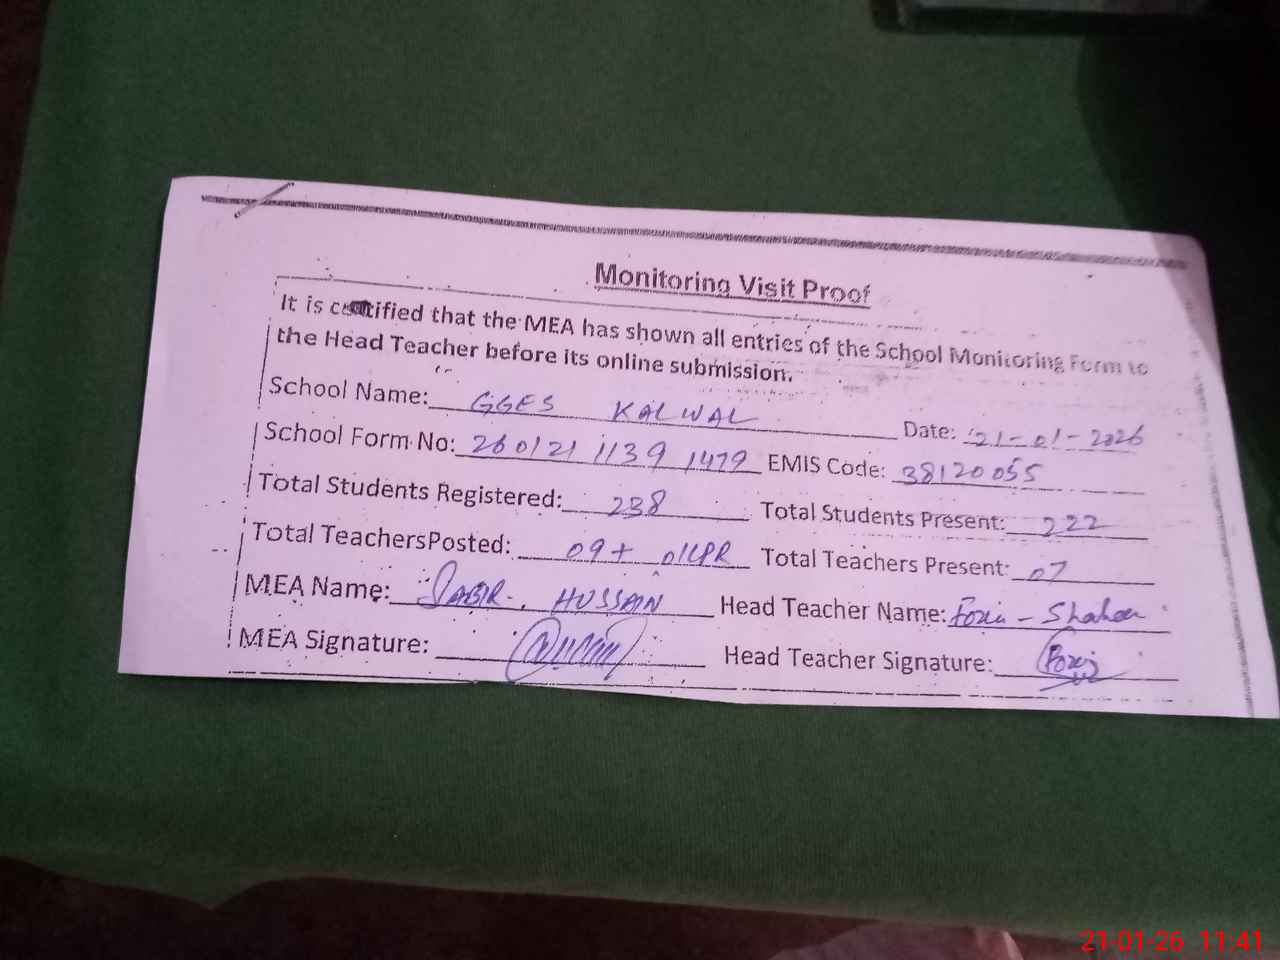 Monitoring Visit Proof
It is certified that the MEA has shown all entries of the School Monitoring Form to
the Head Teacher before its online submission.
School Name: GGES KALWAL Date: 21-01-2026
School Form No: 260121 1139 1479 EMIS Code: 38120055
Total Students Registered: 238 Total Students Present: 222
Total TeachersPosted: 09+ Total Teachers Present: 07
MEA Name: SABIR. HUSSAIN Head Teacher Name:
MEA Signature: Head Teacher Signature:
21-01-26 11:41